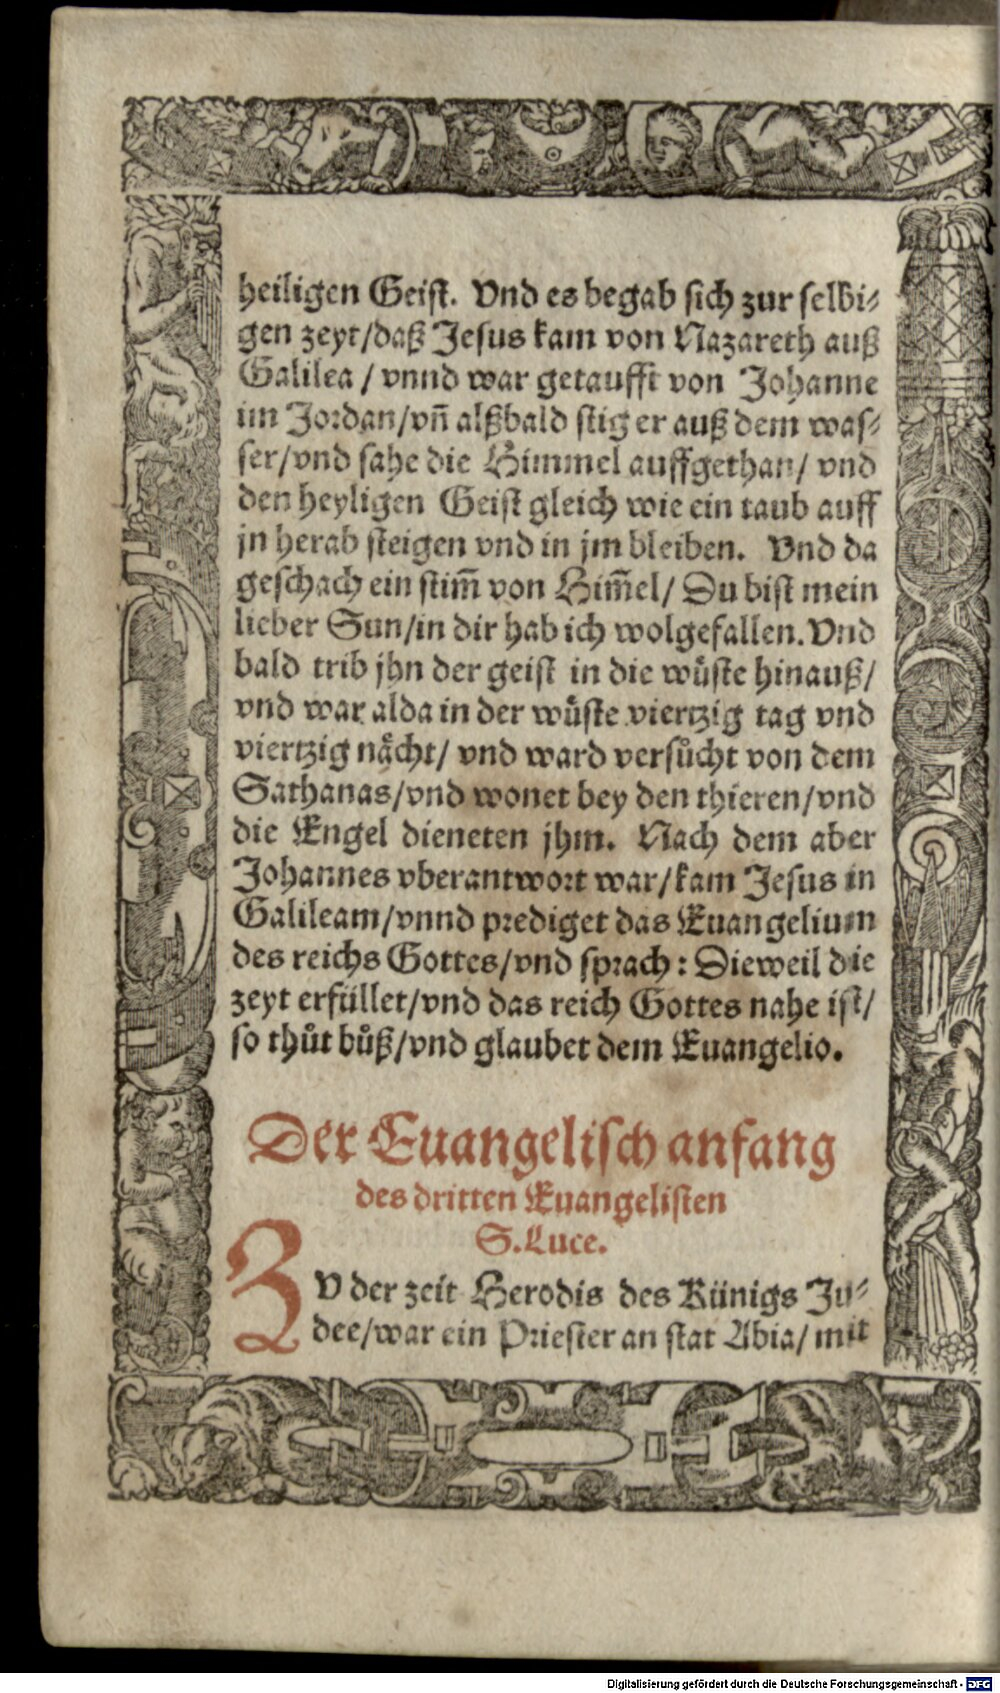 heiligen Geist. Vnd es begab sich zur selbi⸗
gen zeyt/daß Jesus kam von Nazareth auß
Galilea / vnnd war getaufft von Johanne
im Jordan/vñ alßbald stig er auß dem was⸗
ser/vnd sahe die Himmel auffgethan/ vnd
den heyligen Geist gleich wie ein taub auff
jn herab steigen vnd in jm bleiben. Vnd da
geschach ein stim̃ von Him̃el/ Du bist mein
lieber Sun/in dir hab ich wolgefallen. Vnd
bald trib jhn der geist in die wuͤste hinauß/
vnd war alda in der wuͤste viertzig tag vnd
viertzig naͤcht/ vnd ward versuͤcht von dem
Sathanas/vnd wonet bey den thieren/vnd
die Engel dieneten jhm. Nach dem aber
Johannes vberantwort war/kam Jesus in
Galileam/vnnd prediget das Euangelium
des reichs Gottes/vnd sprach: Dieweil die
zeyt erfüllet/vnd das reich Gottes nahe ist/
so thůt bůß/vnd glaubet dem Euangelio.
Der Euangelisch anfang
des dritten Euangelisten
S. Luce.
ZV der zeit Herodis des Künigs Ju⸗
dee/war ein Priester an stat Abia/ mit
Digitalisierung gefördert durch die Deutsche Forschungsgemeinschaft - DFG